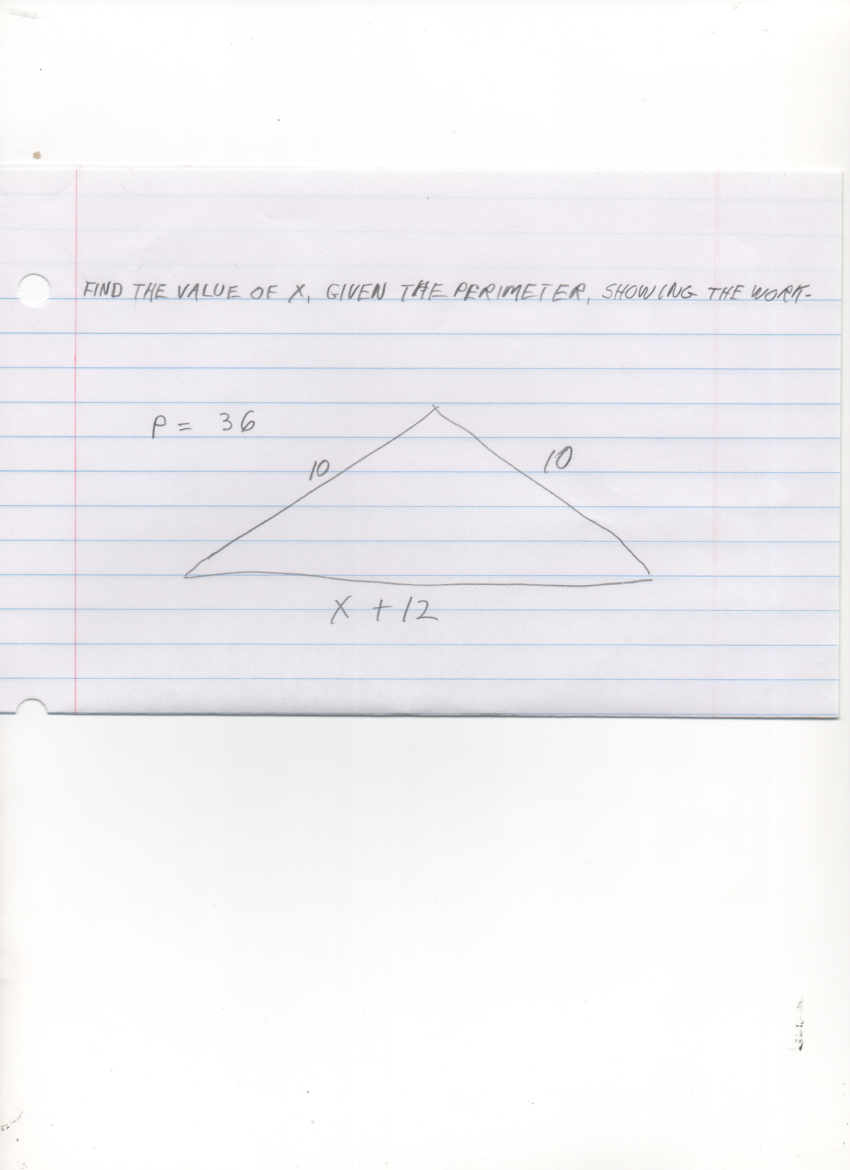 FIND THE VALUE OF X, GIVEN THE PERIMETER, SHOWING THE WORK.
P = 36
10
10
X + 12